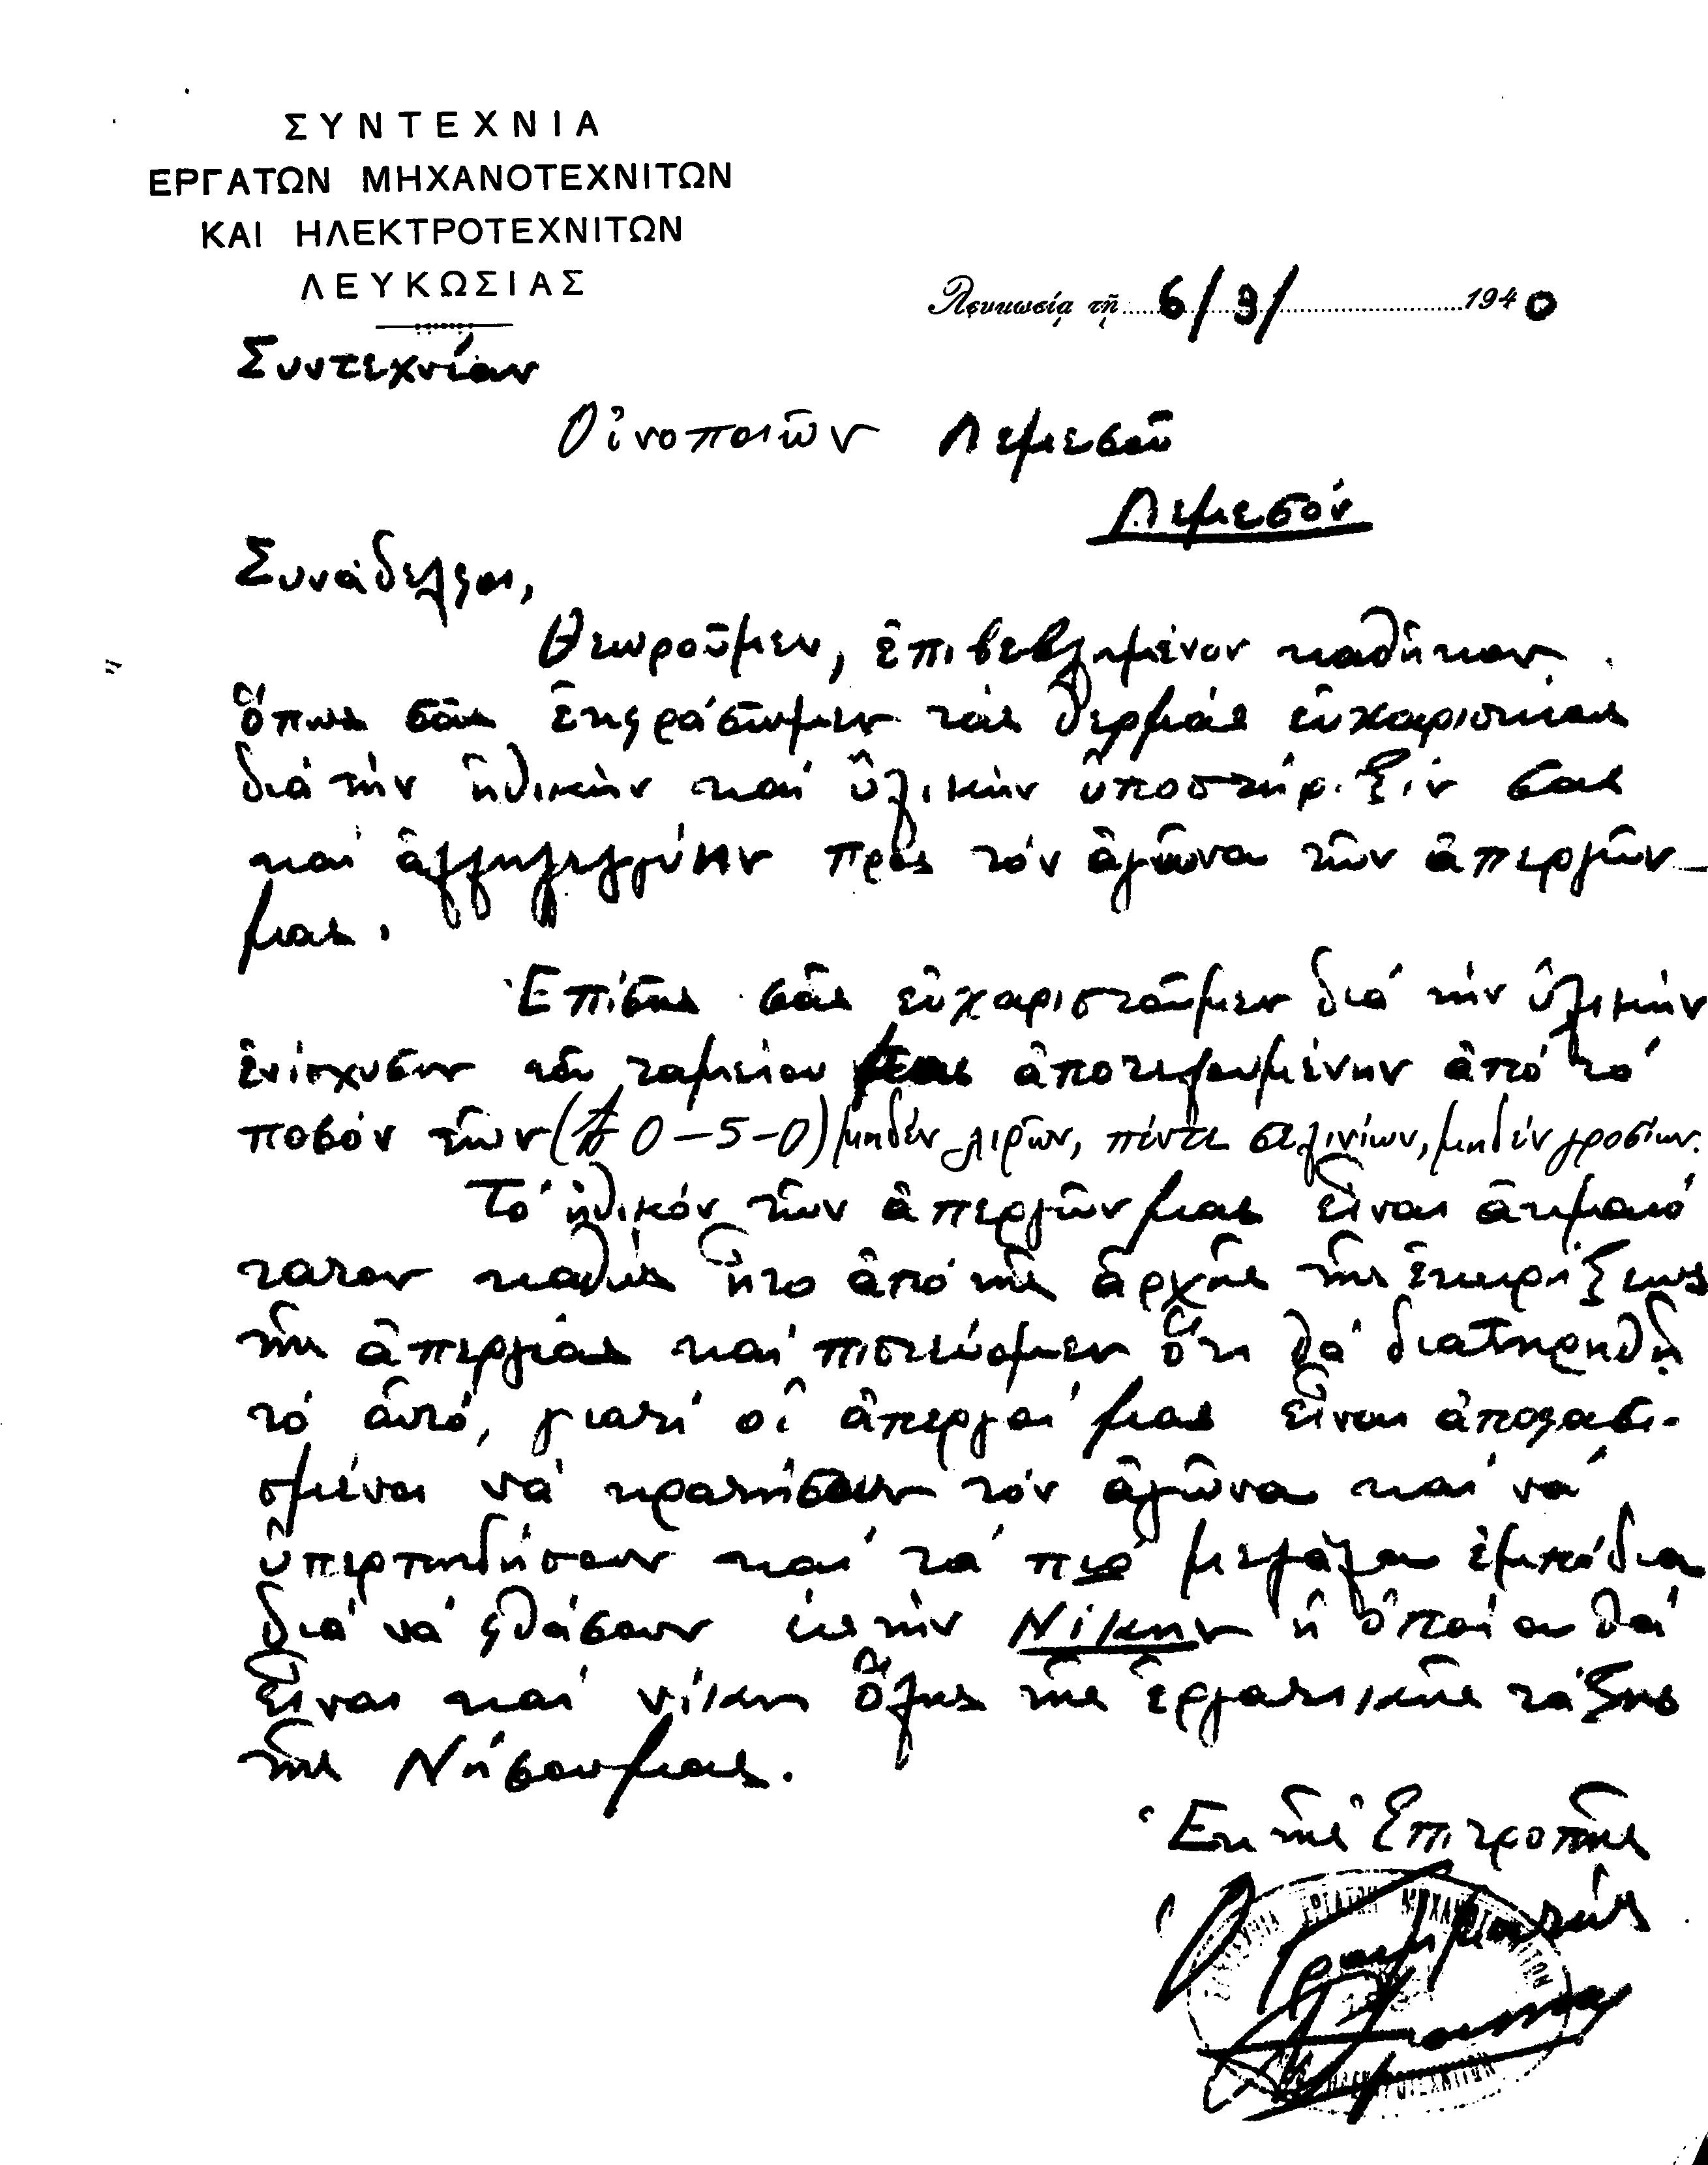 ΣΥΝΤΕΧΝΙΑ
ΕΡΓΑΤΩΝ ΜΗΧΑΝΟΤΕΧΝΙΤΩΝ
ΚΑΙ ΗΛΕΚΤΡΟΤΕΧΝΙΤΩΝ
ΛΕΥΚΩΣΙΑΣ
Λευκωσίᾳ τῇ 6/3/ 1940
Συντεχνίαν
Οἰνοποιῶν Λεμεσοῦ
Λεμεσόν
Συνάδελφοι,
Θεωροῦμεν, ἐπιβεβλημένον καθῆκον
ὅπως σᾶς ἐκφράσωμεν τάς θερμάς εὐχαριστίας
διά τήν ἠθικήν καί ὑλικήν ὑποστήριξίν σας
καί ἀλληλεγγύην πρός τόν ἀγῶνα τῶν ἀπεργῶν
μας.
Ἐπίσης σᾶς εὐχαριστοῦμεν διά τήν ὑλικήν
ἐνίσχυσιν τοῦ ταμείου μας ἀποτελουμένην ἀπό τό
ποσόν τῶν (£ 0-5-0) μηδέν λιρῶν, πέντε σελινίων, μηδέν γροσίων.
Τό ἠθικόν τῶν ἀπεργῶν μας εἶναι ἀκμαιό
τατον καθώς ἦτο ἀπό τῆς ἀρχῆς τῆς ἐκρήξεως
τῆς ἀπεργίας καί πιστεύομεν ὅτι θά διατηρηθῇ
τό αὐτό, γιατί οἱ ἀπεργοί μας εἶναι ἀποφασι-
σμένοι νά κρατήσουν τόν ἀγῶνα καί νά
ὑπερπηδήσουν καί τά πιό μεγάλα ἐμπόδια
διά νά φθάσουν εἰς τήν Νίκην ἡ ὁποία θά
εἶναι καί νίκη ὅλης τῆς ἐργατικῆς τάξης
τῆς Νήσου μας.
Ἐκ τῆς Ἐπιτροπῆς
Ὁ Γραμματεύς